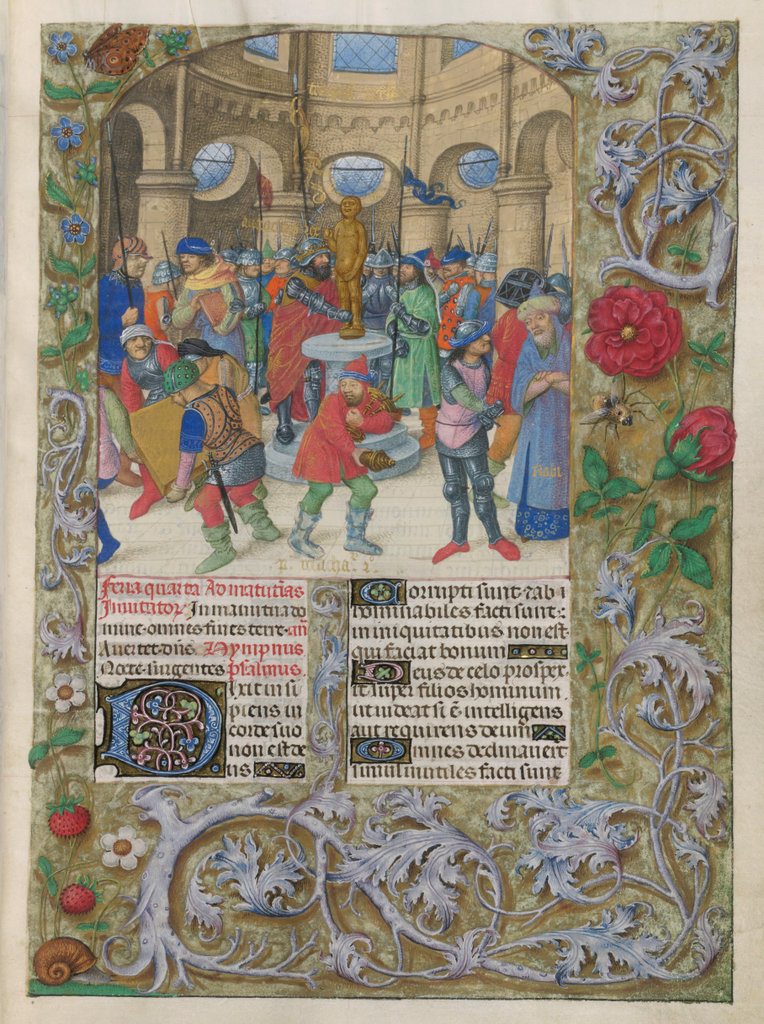 Feria quarta Ad matutīas
Inuitatoꝝ In manu tua do
mine·omnes fines terre·an̄
Auertet·dn̄s Hympnus
Nocte·surgentes Psalmus.
Dixit in si
piens in
corde suo
non est de
us
Corrupti sunt·⁊ ab i
hominabiles facti sunt:
in iniquitatibus non est·
qui faciat bonum
Deus de celo prosper·
it super filios hominum
ut uideat si ē·intelligens
aut requirens deum
Omnes declinauerūt
simul inutiles facti sunt